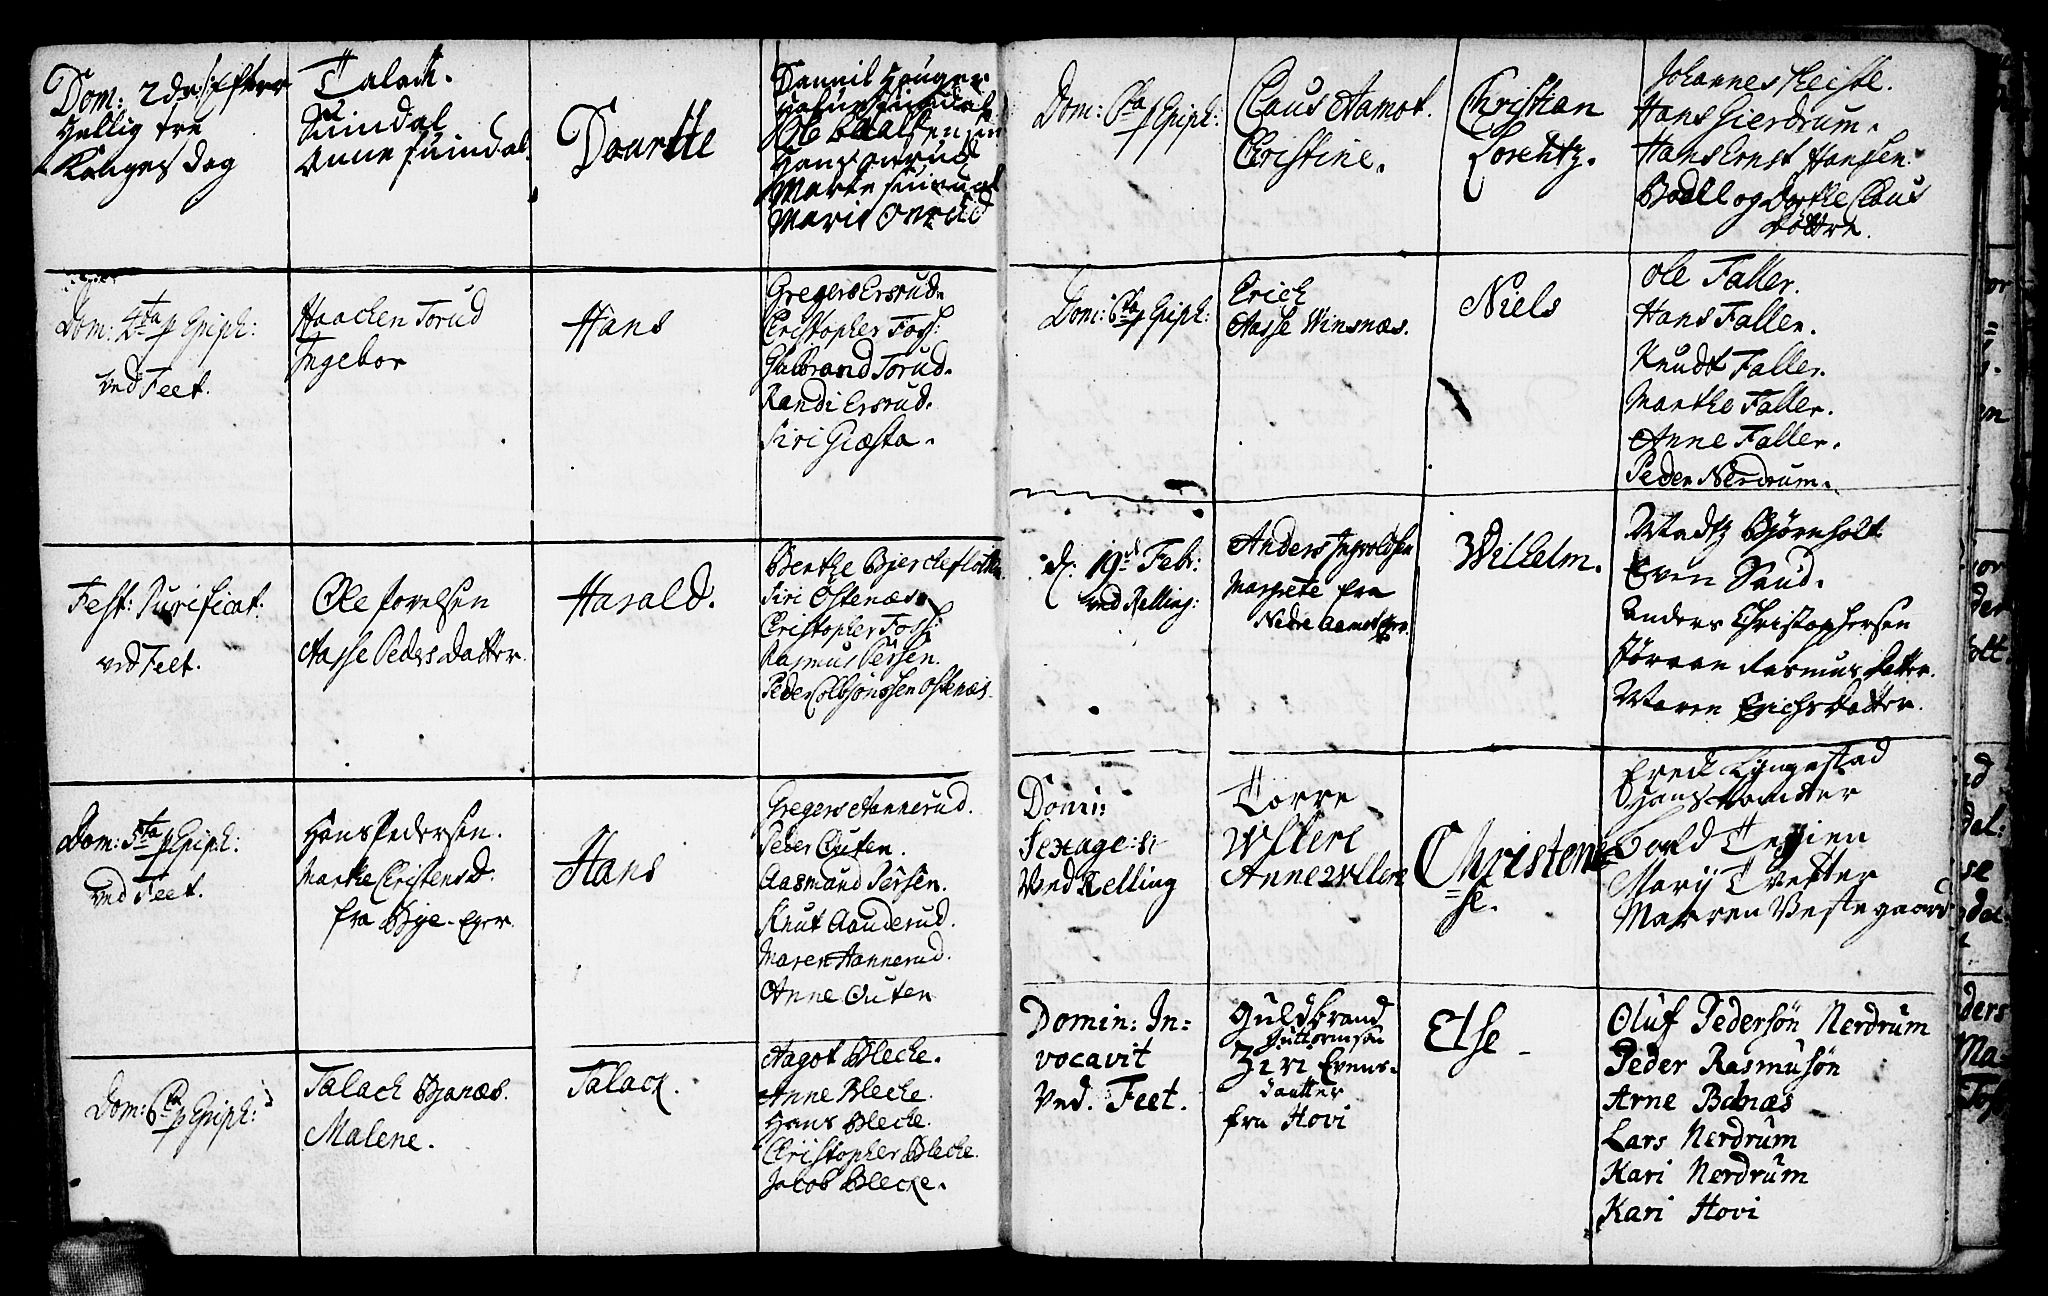 Dom: 2den efter
Hellig tre
Konges dag
Talack.
Suindal
Anne Suindal.
Dourtte
Daniel Houger
Ole
Hans Onrud
Marte Suindal
Marit Onrud
Dom: 4ta p Epiph:
ved Feet.
Haachen Torud
Ingebor
Hans
Gregers Ersrud.
Christopher Foss:
Gulbrand Torud.
Randi Ersrud.
Siri Giæsta.
Fest: Purificat:
ved Feet.
Ole Povelsen
Aasse Pedersdatter.
Harald.
Berthe Bjercheflotten
Siri Ostenæs
Christopher Foss:
Rasmus Persen.
Peder Colbiønssen Ostenæs.
Dom: 5ta p Epiph:
ved Feet.
Hans Pedersen.
Marthe Christensd.
fra Bye. Eger.
Hans
Gregers Hannerud.
Peder Outen.
Aasmund Persen.
Knut Aanderud.
Maren Hannerud.
Anne Outen
Dom: 6ta p Epiph:
Talack Bjanæs.
Malene.
Talack.
Aagot Blecke.
Anne Blecke.
Hans Blecke.
Christopher Blecke.
Jacob Blecke.
Dom: 6ta p Epiph:
Claus Aamot.
Christine.
Christian
Lorentz.
Johannes Heistl.
Hans Gierdrum.
Hans Ernst Hansen.
Bodll og Dorthe Claus
Døttre.
Dom: 6ta p Epiph:
Erich
Aasse Winsnæs.
Niels
Ole Faller.
Hans Faller.
Knudt Faller.
Marthe Faller.
Anne Faller.
Peder Nerdrum.
d. 19de Febr:
ved Kelling:
Anders Ingvoldsen
Margrete fra
Nedre Aamot Eger.
Wilhelm.
Madtz Bjørnholt
Even Saud.
Anders Christophersen
Jøraan Rasmus datter.
Maren Erichs datter.
Domi:
Sexages:
Ved Kelling
Torre
Ullere
Anne Ullere
Christen=
se.
Erech Lyngestad
Hans
Maryj Tvetter
Marren Vestegaard
Domin: In=
vocavit
Ved. Feet.
Guldbrand
Guttormsøn
Ziri Evens=
daatter
fra Hovi
Else
Oluf Pedersøn Nerdrum
Peder Rasmusøn
Arne Bonæs
Lars Nerdrum
Kari Nerdrum
Kari Hovi